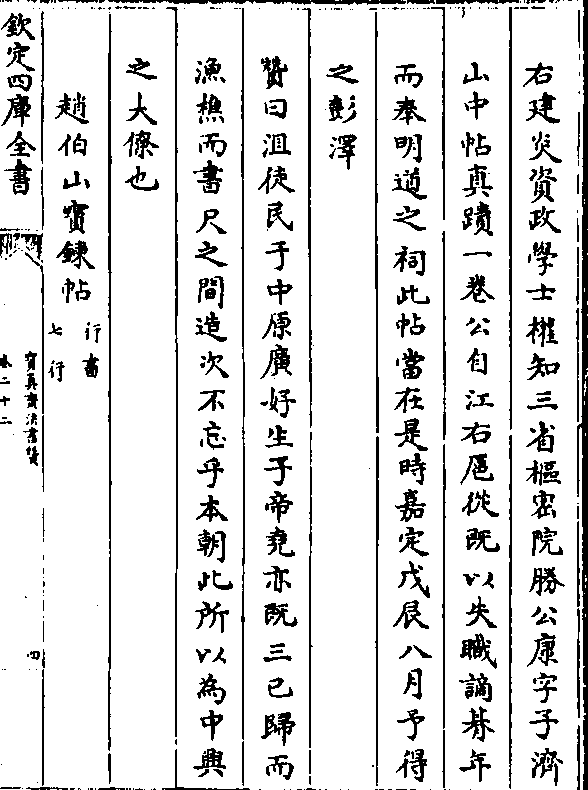 右建炎資政學士權知三省樞密院勝公康字子濟
山中帖真蹟一卷公自江右扈從既以失職謫朞年
而奉明道之祠此帖當在是時嘉定戊辰八月予得
之彭澤
贊曰沮徒民于中原廣好生于帝堯亦既三已歸而
漁樵而書尺之間造次不忘乎本朝此所以為中興
之大僚也
趙伯山寶録帖行書七行
欽定四庫全書
寳真齋法書贊
卷二十二
四